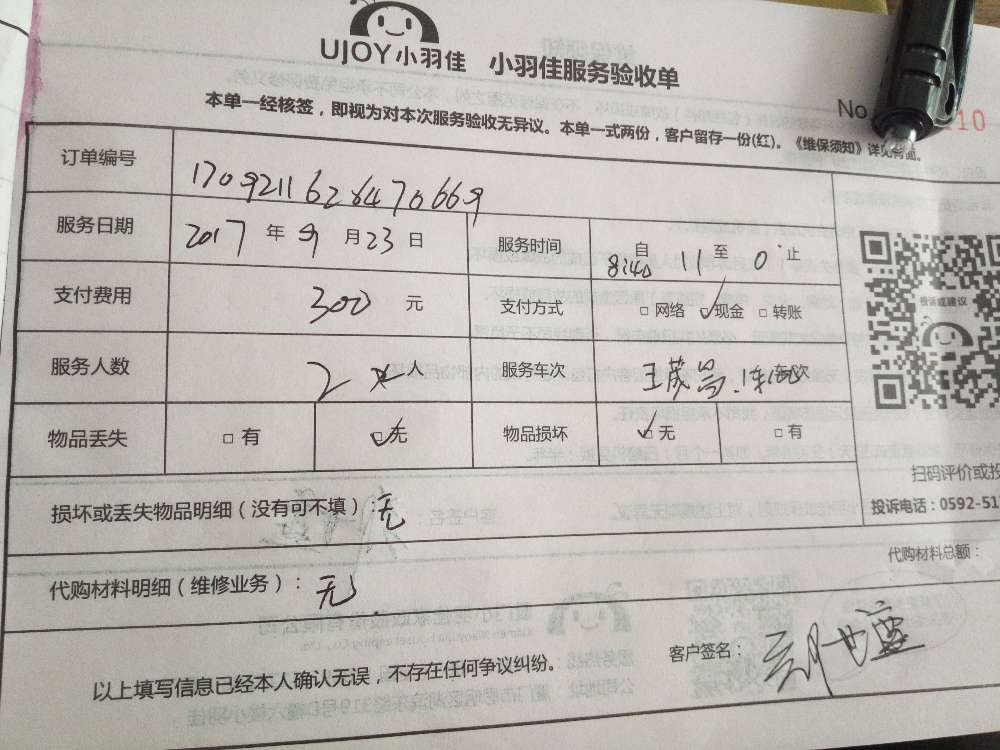 UJOY小羽佳 小羽佳服务验收单
No. 10
本单一经核签，即视为对本次服务验收无异议。本单一式两份，客户留存一份(红)。《维保须知》详见背面。
订单编号 1709211628470669
服务日期 2017 年 9 月 23 日 服务时间 自 8:40 11 至 0 止
支付费用 300 元 支付方式 □ 网络 ☑ 现金 □ 转账
投诉或建议
服务人数 2 人 服务车次
物品丢失 □ 有 ☑ 无 物品损坏 ☑ 无 □ 有
扫码评价或投
损坏或丢失物品明细（没有可不填）: 无
投诉电话：0592-51
代购材料明细（维修业务）：无
代购材料总额：
以上填写信息已经本人确认无误，不存在任何争议纠纷。
客户签名：